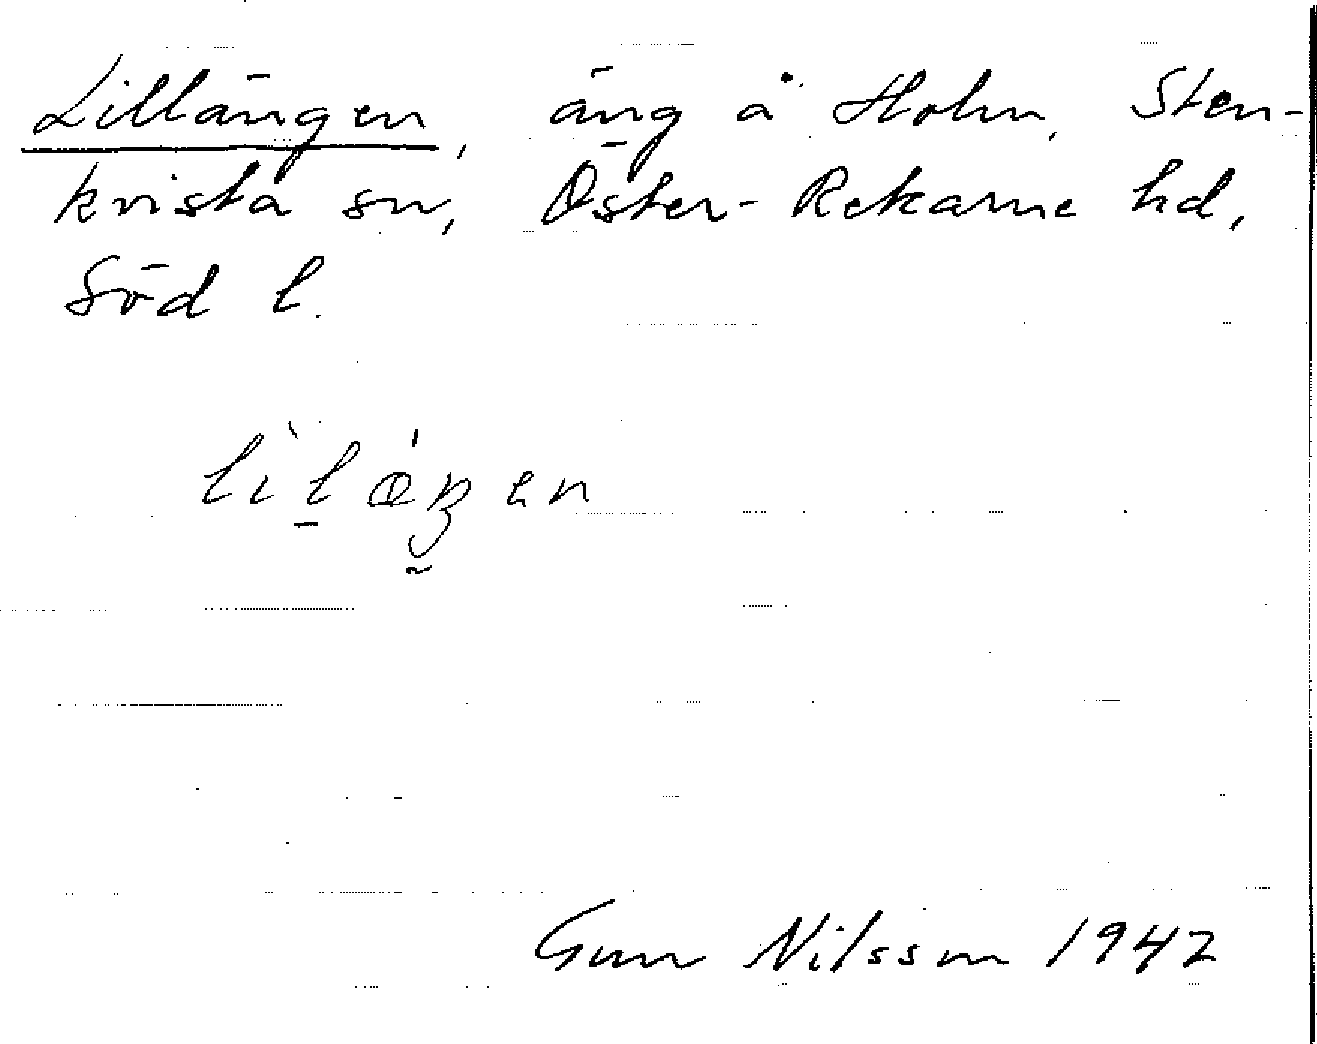 Lillängen, äng å Holm, Sten-
kvista sn, Öster-Rekarne hd,
Söd l.
Gun Nilsson 1942